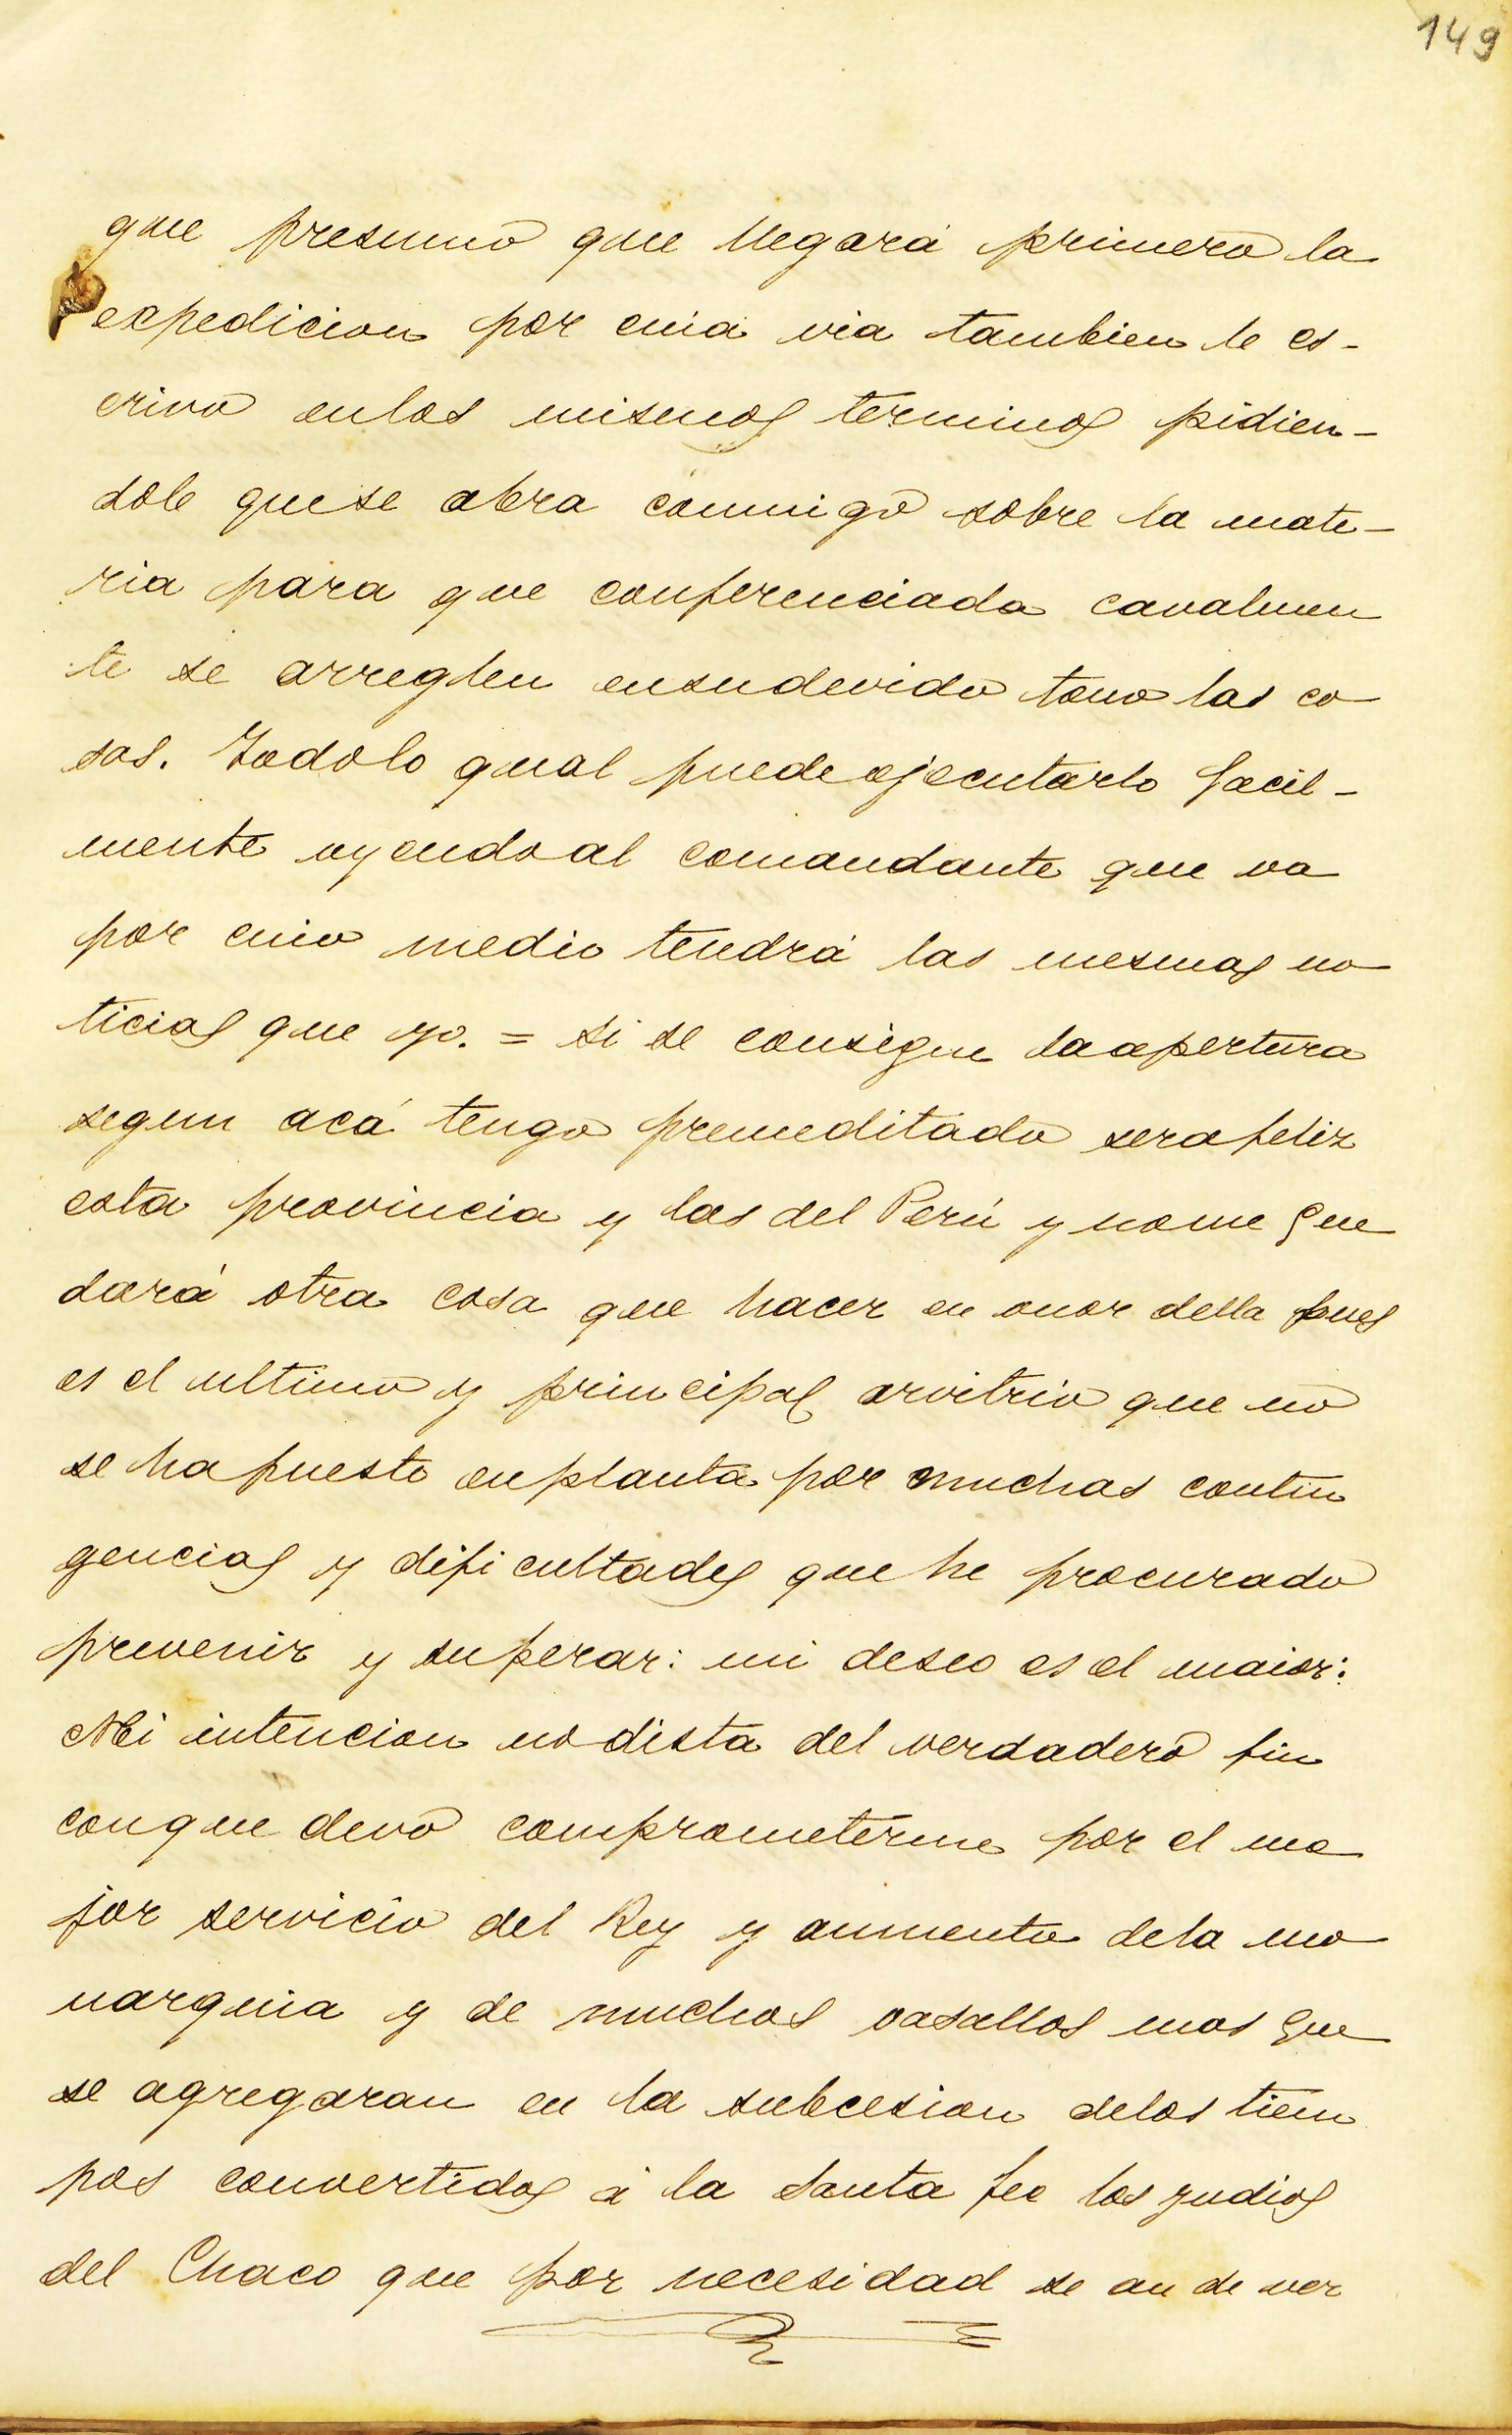 149
que presumo que llegará primero la
expedicion por cuia via tambien le es-
crivo enlos mismos terminos pidien-
dole quese abra conmigo sobre la mate-
ria para que conferenciada cavalmen
te se arreglen ensudevido tono las co
sas. Todolo qual puedeejecutarlo facil-
mente oyendoal comandante que va
por cuio medio tendrá las mesmas no
ticias que yo. = Si se consigue laapertura
segun acá tengo premeditado serafeliz
esta provincia y las del Perú y nome que
dará otra cosa que hacer en onor della pues
es el ultimo y principal arvitrio que no
se hapuesto enplanta por muchas contin
gencias y dificultades que he procurado
prevenir y superar: mi deseo es el maior:
Mi intencion nodista del verdadero fin
conque devo comprometerme por el me
jor servicio del Rey y aumento dela mo
narquia y de muchos vasallos mas que
se agregaran en la subcesion delos tiem
pos convertidos á la Santa fee los yndios
del Chaco que por necesidad se an de ver